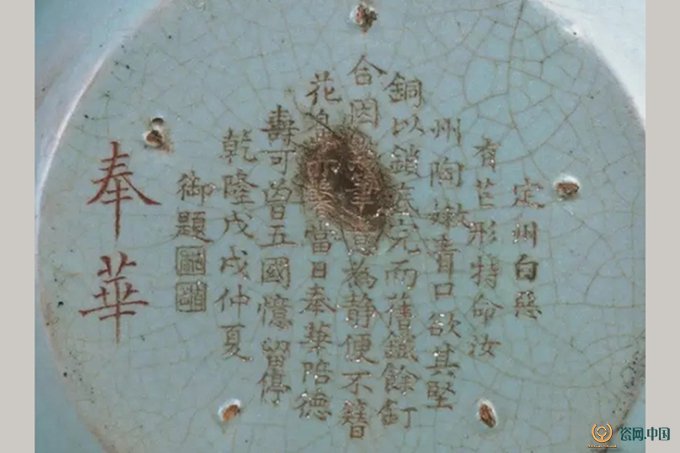 定州白惡
有芒形特命汝
州陶嫩青口欲其堅
銅以鎖底完而舊鐵餘釘
合因筆意為靜便不簪
花鼻亦馨當日奉華陪德
壽可曾五國憶留停
乾隆戊戌仲夏
御題
奉華
瓷网.中国